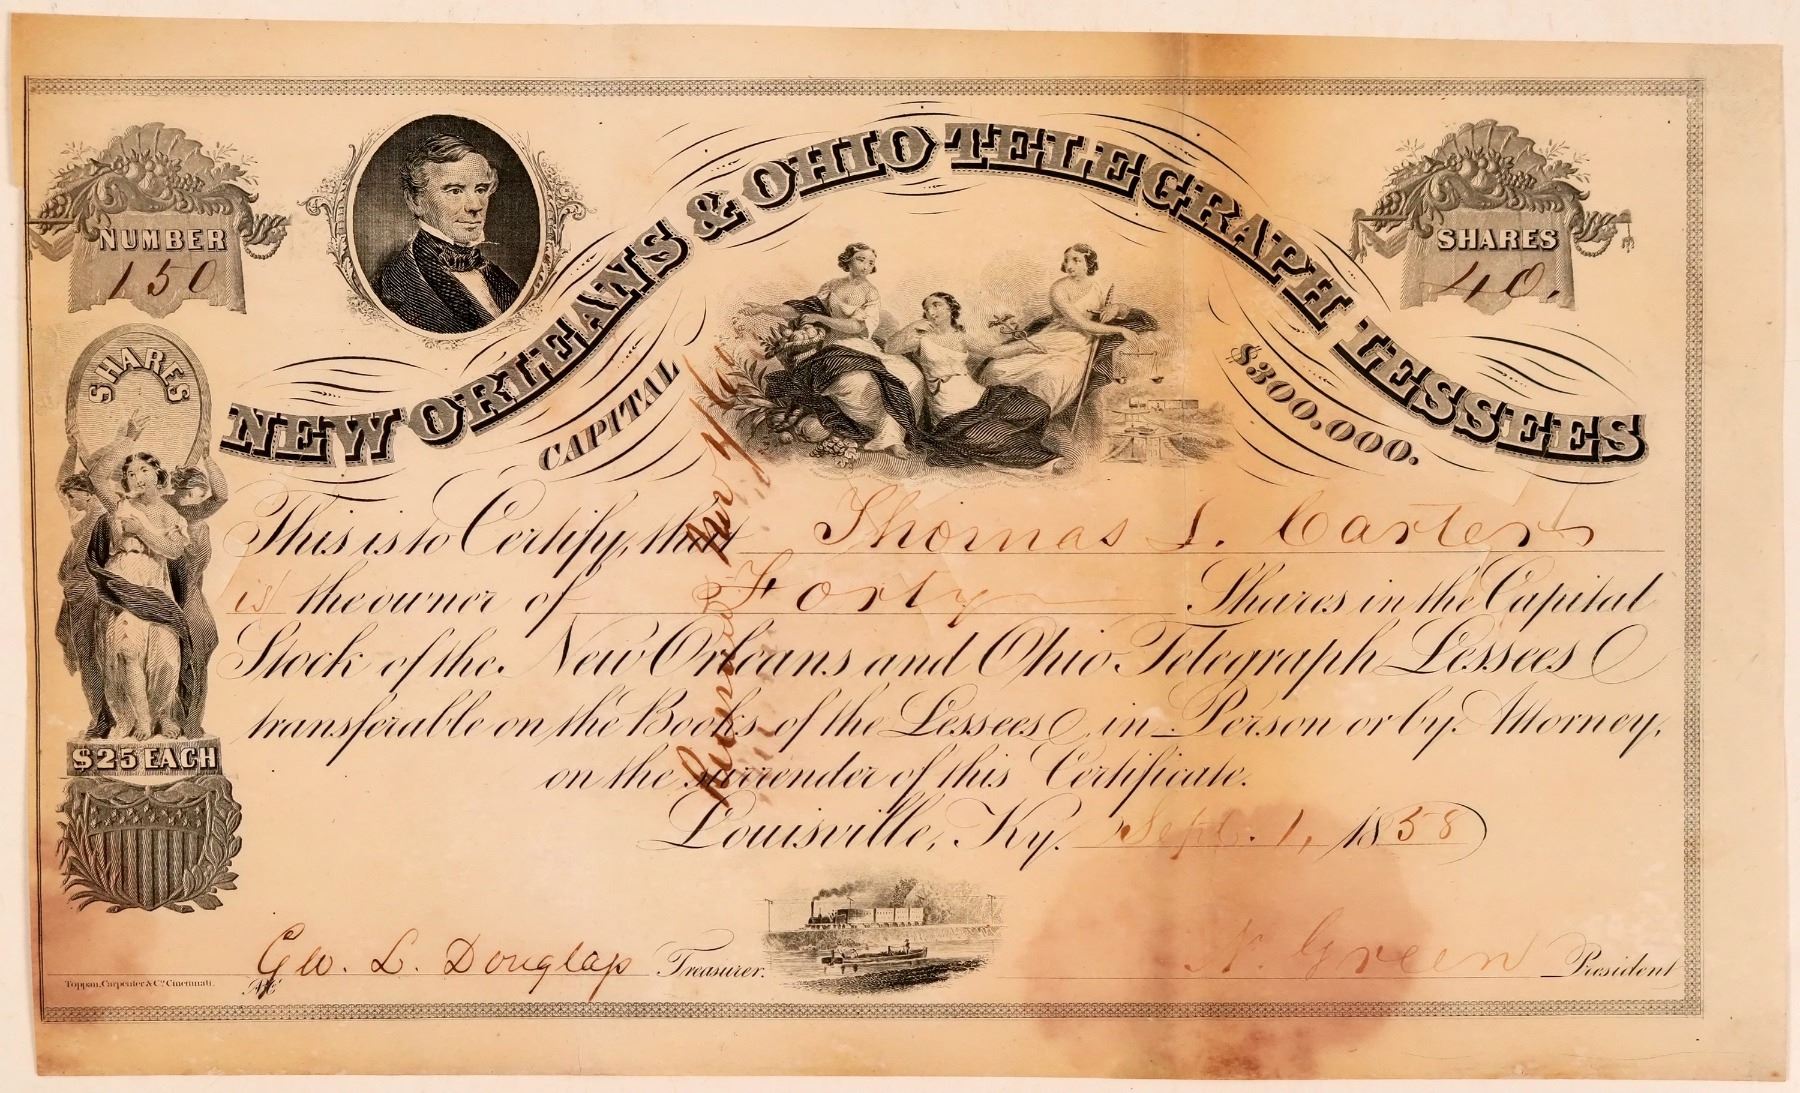 NUMBER
150
NEW ORLEANS & OHIO TELEGRAPH LESSEES
SHARES
40.
CAPITAL $300.000.
SHARES
$25 EACH
This is to Certify, that Thomas L. Carter
is the owner of Forty Shares in the Capital
Stock of the New Orleans and Ohio Telegraph Lessees
transferable on the Books of the Lessees in Person or by Attorney,
on the surrender of this Certificate.
Louisville, Ky. Sept. 1, 1858
Geo. L. Douglass Treasurer.
N. Green President
Toppan, Carpenter & Co. Cincinnati.